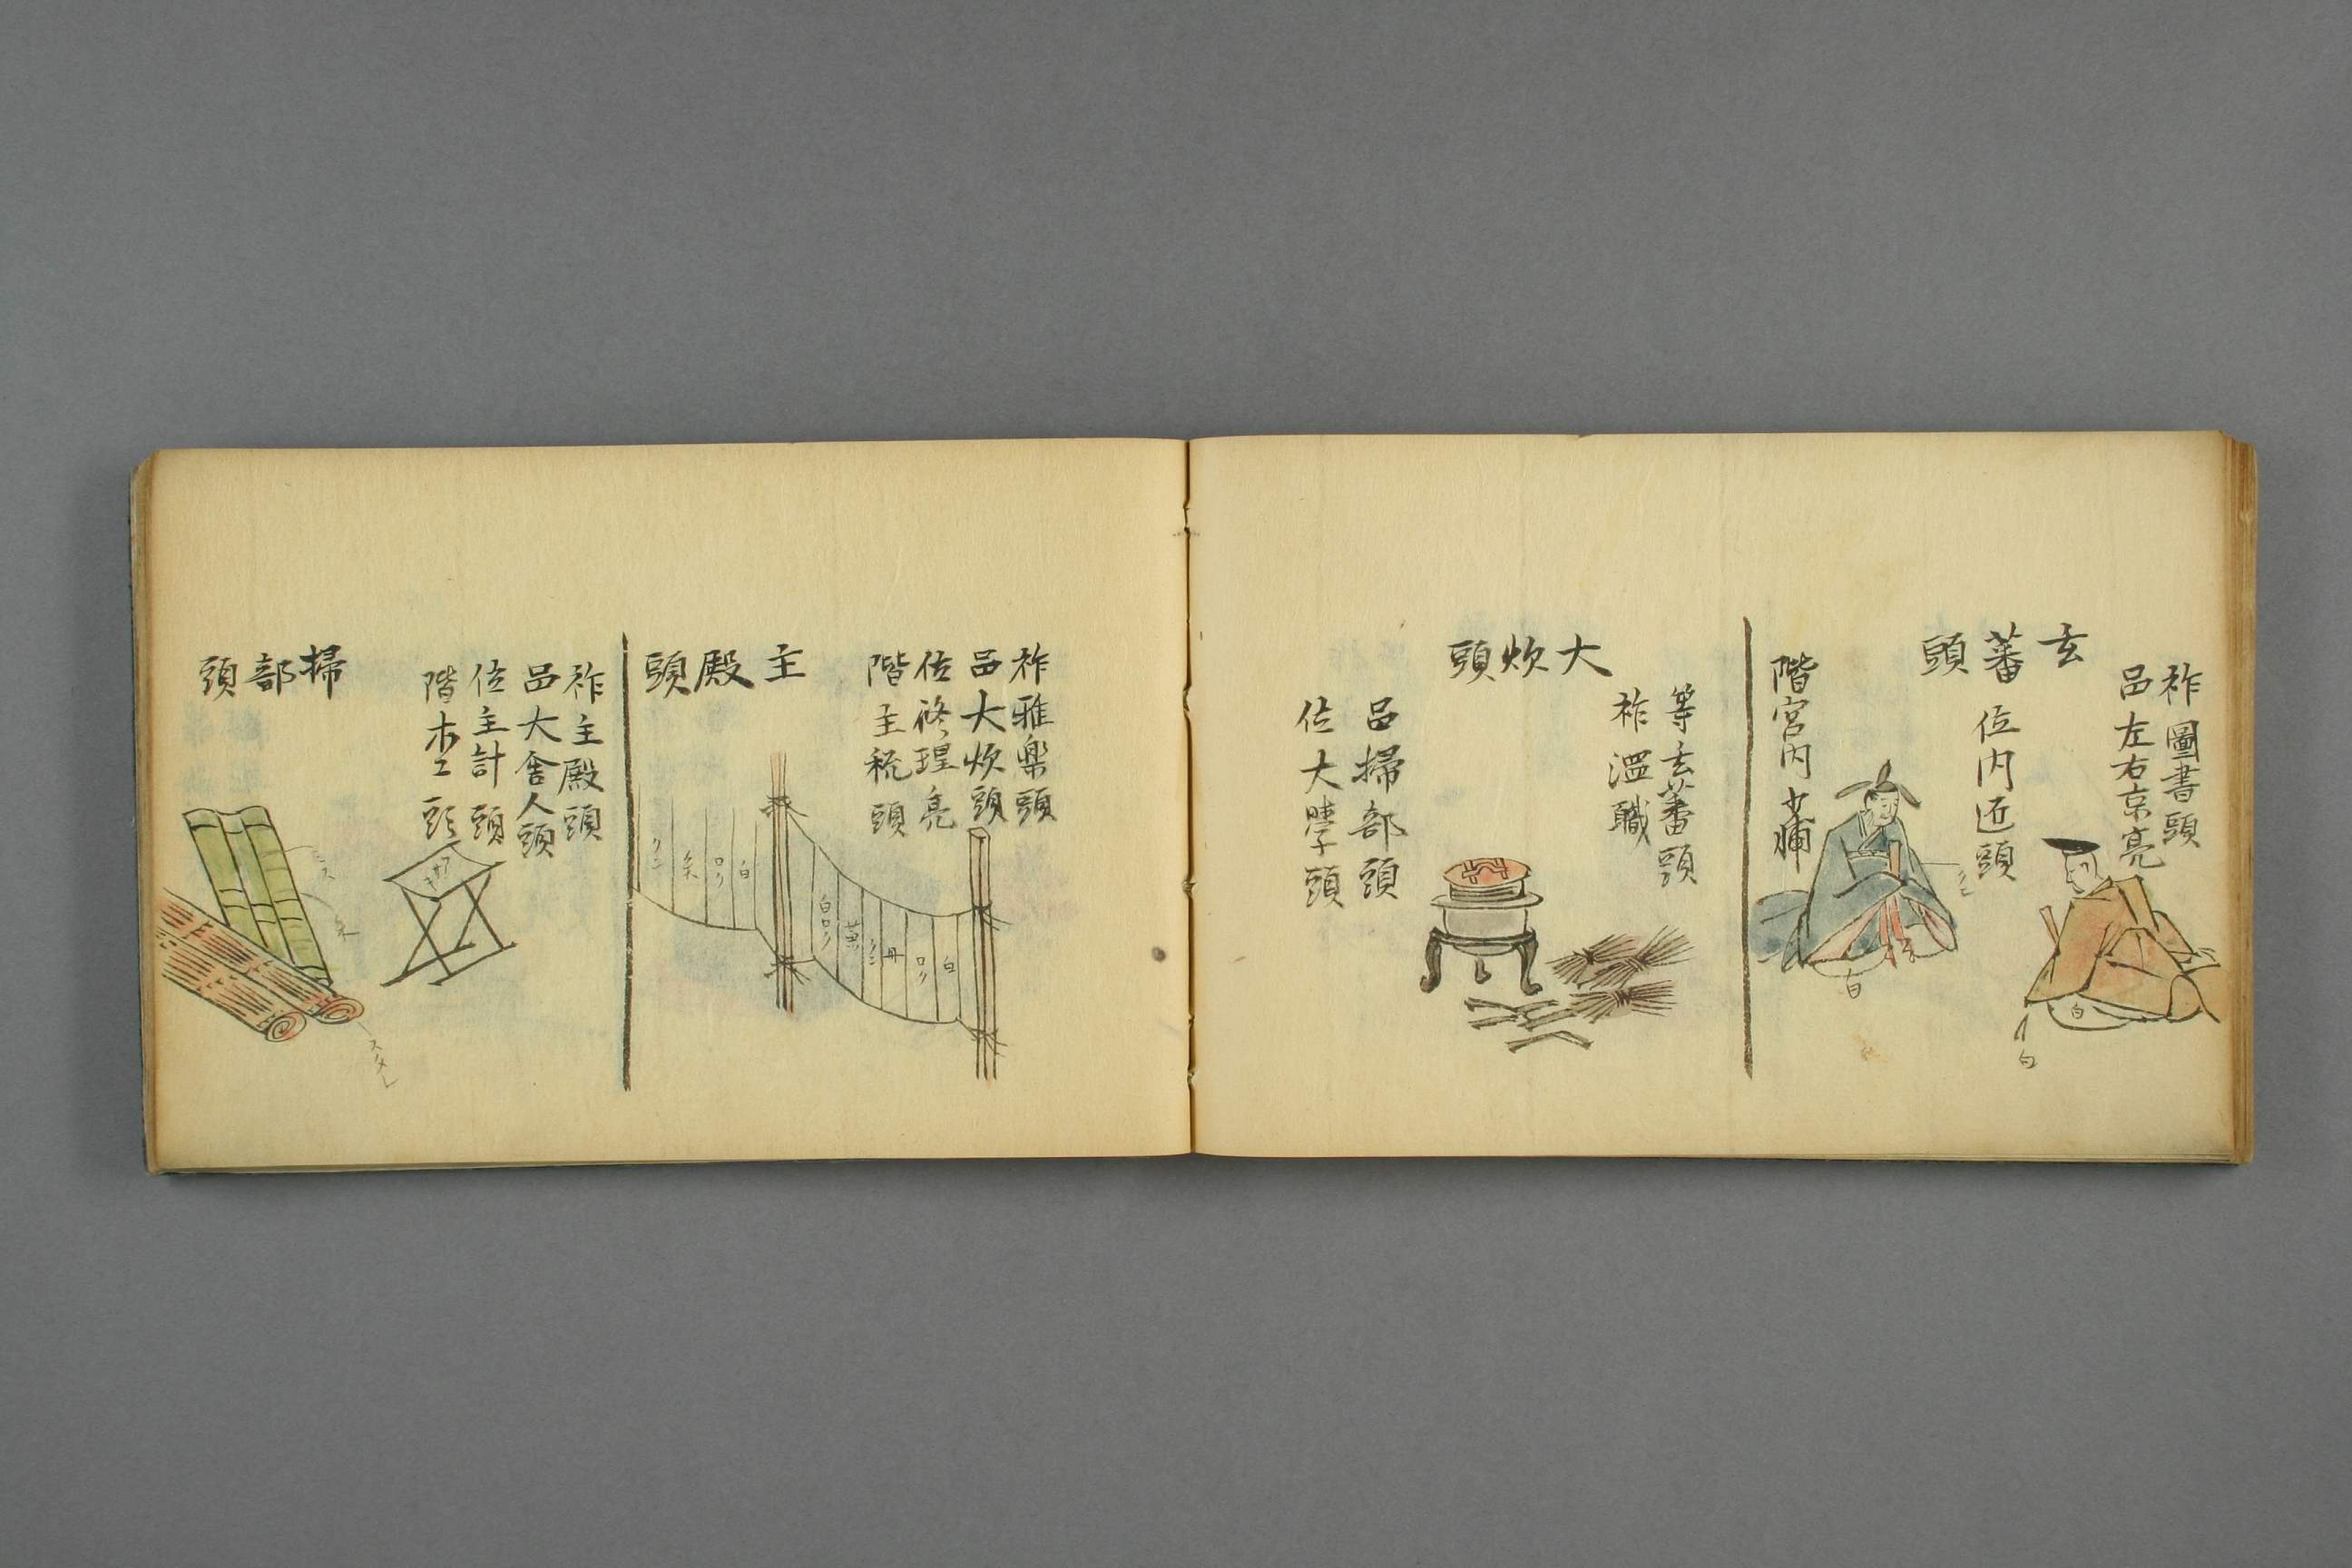 玄蕃頭
祚圖書頭
品左右京亮
位内匠頭
階宮内少輔
クン
白
白
白
大炊頭
等玄蕃頭
祚溫職
品掃部頭
位大學頭
祚雅樂頭
品大炊頭
位修理亮
階主税頭
主殿頭
白
ロク
丹
クン
黄
白ロク
白
ロク
朱
クン
祚主殿頭
品大舍人頭
位主計頭
階木工頭
掃部頭
ミス
朱
スタレ